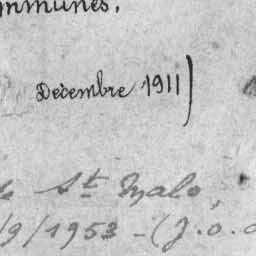 mmunes.
Décembre 1911)
St Malo,
/9/1953 - (J.o.